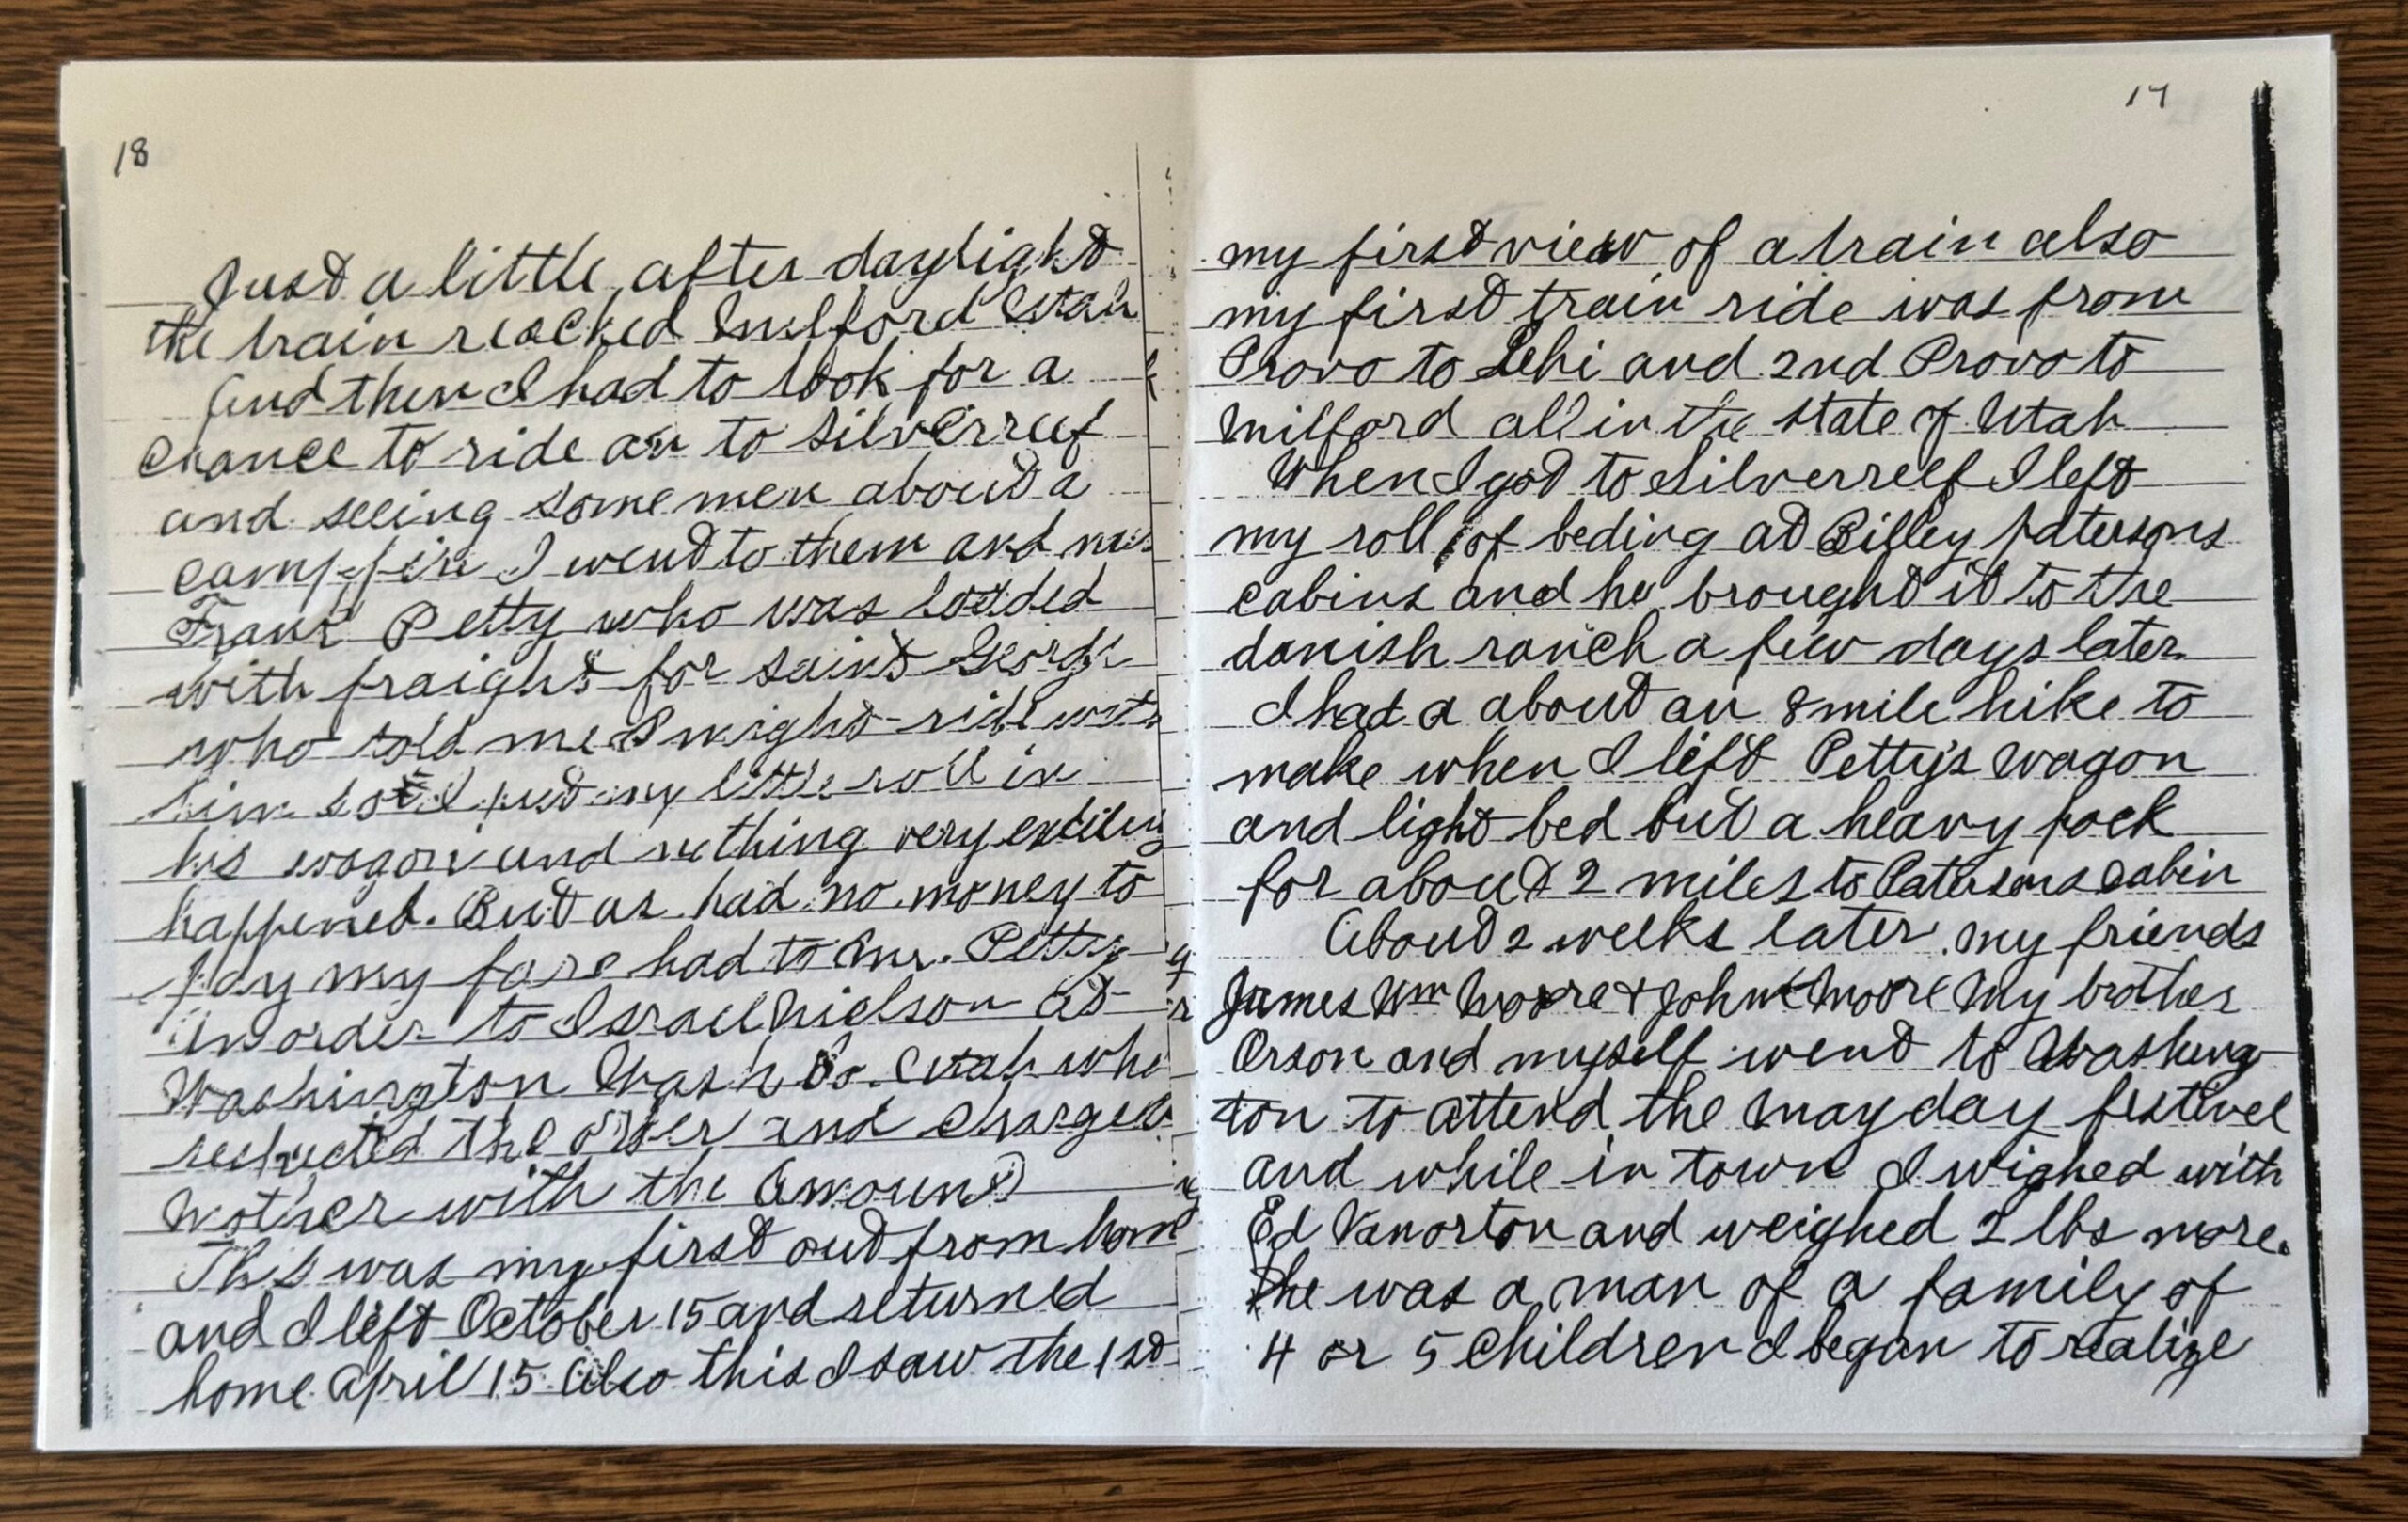 18
Just a little after daylight
the train reached Milford Utah
And then I had to look for a
chance to ride on to Silverreef
and seeing some men about a
campfire I went to them and met
Frank Petty who was loaded
with fraight for saint George
who told me I might ride with
him so I put my little roll in
his wagon and nothing very exciting
happened. But as had no money to
pay my fare had to Mr. Petty
an order to Israel Nielson at
Washington Wash Co. Utah who
respected the order and charged
Mother with the amount
This was my first out from home
and I left October 15 and returned
home April 15 also this I saw the 1st
19
my first view of a train also
my first train ride was from
Provo to Lehi and 2nd Provo to
Milford all in the state of Utah
When I got to Silverreef I left
my roll of beding at Billey Patersons
cabins and he brought it to the
danish ranch a few days later
I had a about an 8 mile hike to
make when I left Petty's wagon
and light bed but a heavy pack
for about 2 miles to Patersons cabin
About 2 weeks later my friends
James Wm Moore & John Moore My brother
Orson and myself went to Washing
ton to attend the May day festivel
and while in town I wighed with
Ed Vanorton and weighed 2 lbs more.
he was a man of a family of
4 or 5 Children I began to realize